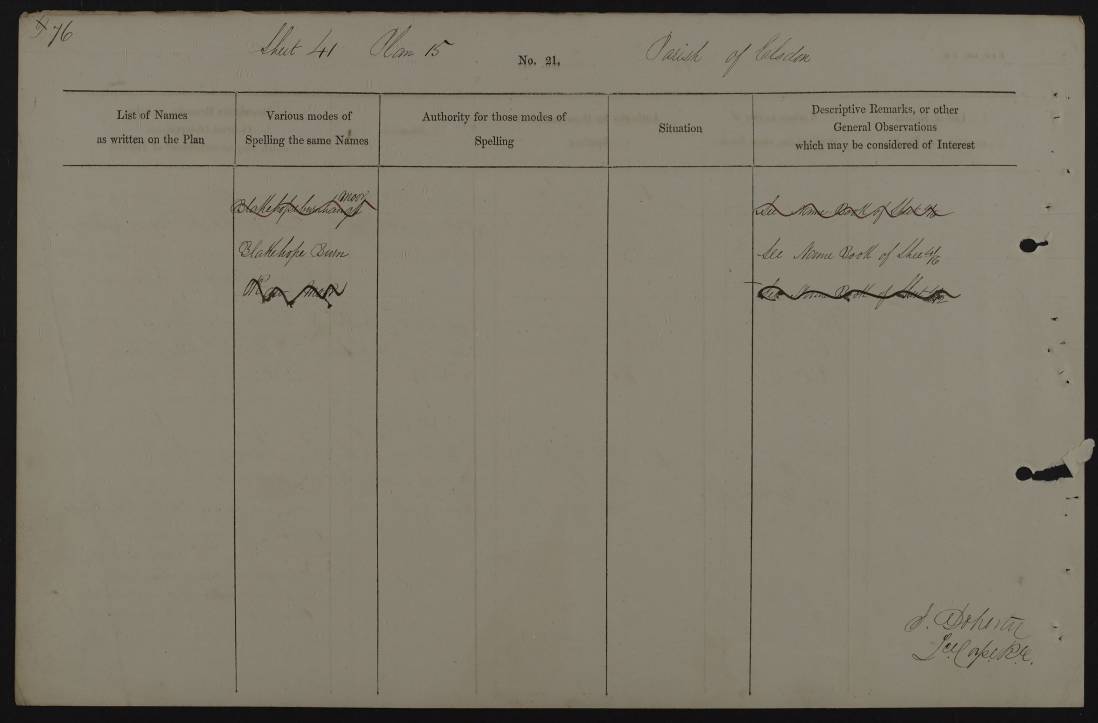 76
Sheet 41 Plan 15 No. 21, Parish of Elsdon
List of Names
as written on the Plan
Various modes of
Spelling the same Names
Authority for those modes of
Spelling
Situation
Descriptive Remarks, or other
General Observations
which may be considered of Interest
moor
Blakehopeburnhaugh See Name Book of Sheet
Blakehope Burn See Name Book of Sheet 41/6
See Name Book of Sheet
J. Doherty
Corpl. R.E.